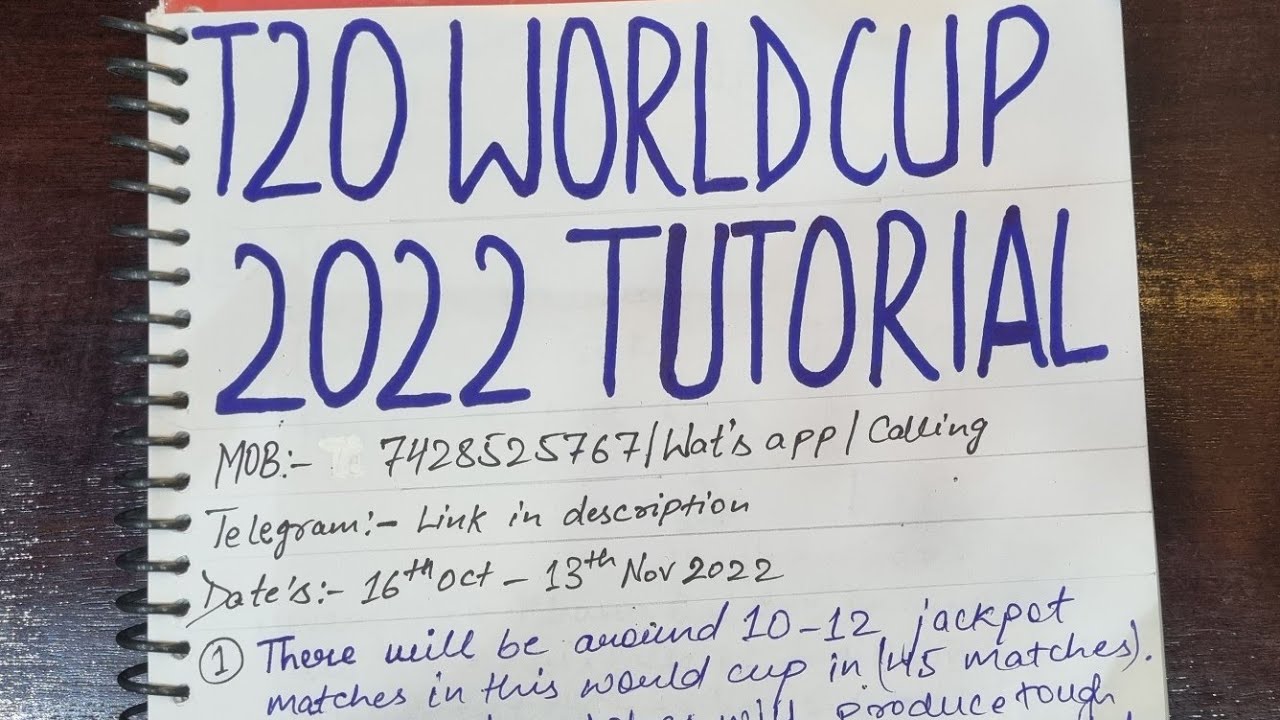 T20 WORLD CUP
2022 TUTORIAL
MOB:- 7428525767/Wat's app/Calling
Telegram:- Link in description
Date's:- 16th Oct - 13th Nov 2022
① There will be around 10-12 jackpot
matches in this world cup in (45 matches).
will produce tough